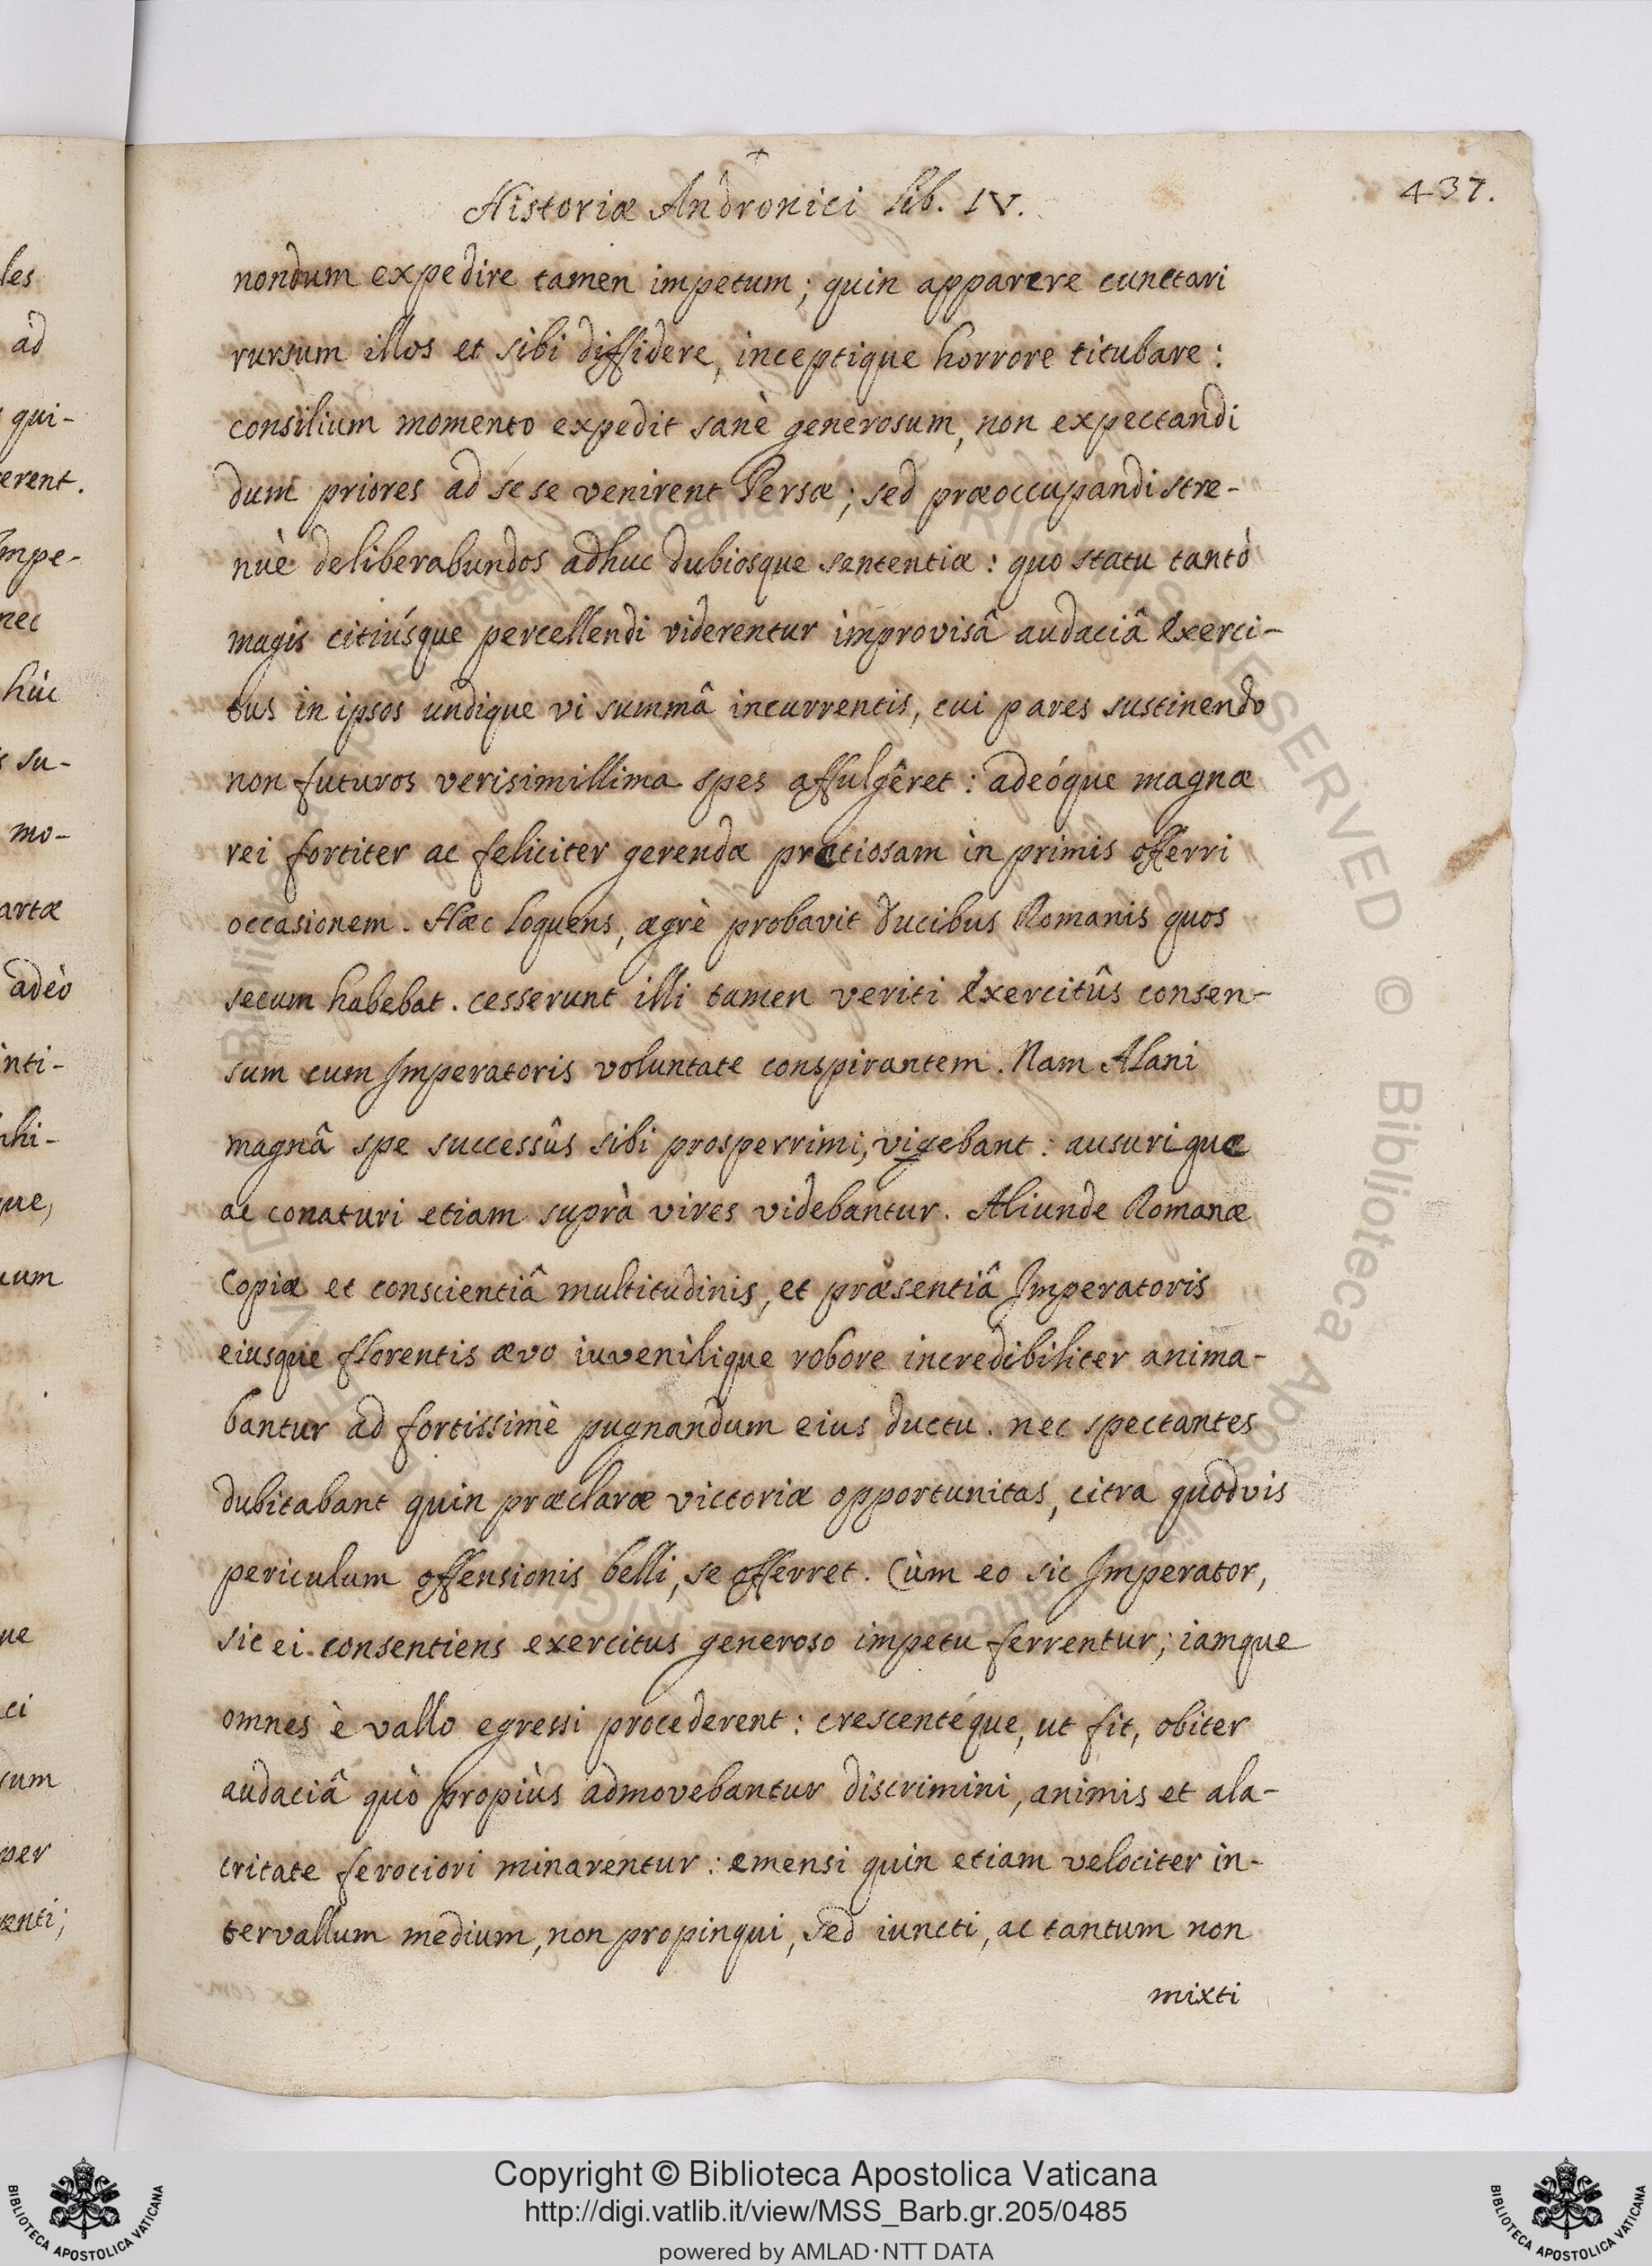 Historiæ Andronici lib. IV.
437.
nondum expedire tamen impetum; quin apparere cunctari
rursum illos et sibi diffidere, inceptique horrore titubare:
consilium momento expedit sanè generosum, non expectandi
dum priores ad sese venirent Persæ; sed præoccupandi stre-
nuè deliberabundos adhuc dubiosque sententiæ: quo statu tantò
magis citiúsque percellendi viderentur improvisâ audaciâ exerci-
tus in ipsos undique vi summâ incurrentis, cui pares sustinendo
non futuros verisimillima spes affulgêret: adeóque magnæ
rei fortiter ac feliciter gerendæ pretiosam in primis offerri
occasionem. Hæc loquens, ægrè probavit ducibus Romanis quos
secum habebat. cesserunt illi tamen veriti exercitûs consen-
sum cum Imperatoris voluntate conspirantem. Nam Alani
magnâ spe successûs sibi prosperrimi, vigebant: ausurique
ac conaturi etiam suprà vires videbantur. Aliunde Romanæ
Copiæ et conscientiâ multitudinis, et præsentiâ Imperatoris
eiusque florentis ævo iuvenilique robore incredibiliter anima-
bantur ad fortissimè pugnandum eius ductu. nec spectantes
dubitabant quin præclaræ victoriæ opportunitas, citra quodvis
periculum offensionis belli, se offerret. Cùm eo sic Imperator,
sic ei consentiens exercitus generoso impetu ferrentur; iamque
omnes è vallo egressi procederent: crescentéque, ut fit, obiter
audaciâ quò propiùs admovebantur discrimini, animis et ala-
critate ferociori minarentur: emensi quin etiam velociter in-
tervallum medium, non propinqui, sed iuncti, ac tantum non
mixti
les
ad
qui-
erent.
mpe-
nec
hûc
su-
mo-
artæ
adeò
inti-
hi-
que,
um
ue
ci
sum
per
enti;
Copyright © Biblioteca Apostolica Vaticana
http://digi.vatlib.it/view/MSS_Barb.gr.205/0485
powered by AMLAD·NTT DATA
BIBLIOTECA APOSTOLICA VATICANA
BIBLIOTECA APOSTOLICA VATICANA